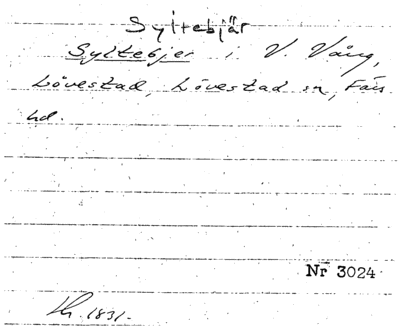 Syltebjär
Syltebjer i V. Vång,
Lövestad, Lövestad sn, Färs
hd.
Nr 3024
Lh. 1831.